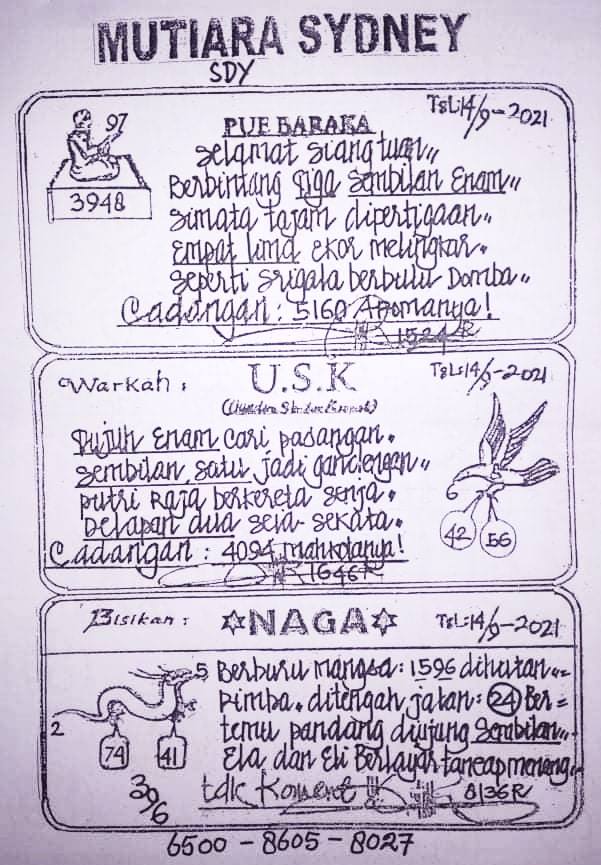 MUTIARA SYDNEY
SDY
97
3948
Tgl:14/9-2021
PUE BARAKA
Selamat siang tuan,,
Berbintang tiga sembilan Enam,,
simata tajam dipertigaan,,
Empat lima ekor melingkar.
seperti srigala berbulu Domba,,
Cadangan: 5160
1524R
Warkah :
U.S.K
Tgl:14/9-2021
Tujuh Enam cari pasangan.
sembilan satu jadi gandengan,,
putri Raja berkereta senja.
Delapan dua seia-sekata.
Cadangan : 4094 mahkotanya!
1646R
6
42
56
Bisikan :
NAGA
Tgl:14/9-2021
5
2
74
41
396
Berburu mangsa: 1596 dihutan
rimba. ditengah jalan: 24 Ber=
temu pandang diujung Sembilan,,
Ela dan Eli Berlayar tancap menang.
tdk Koment
8136R
6500 - 8605 - 8027